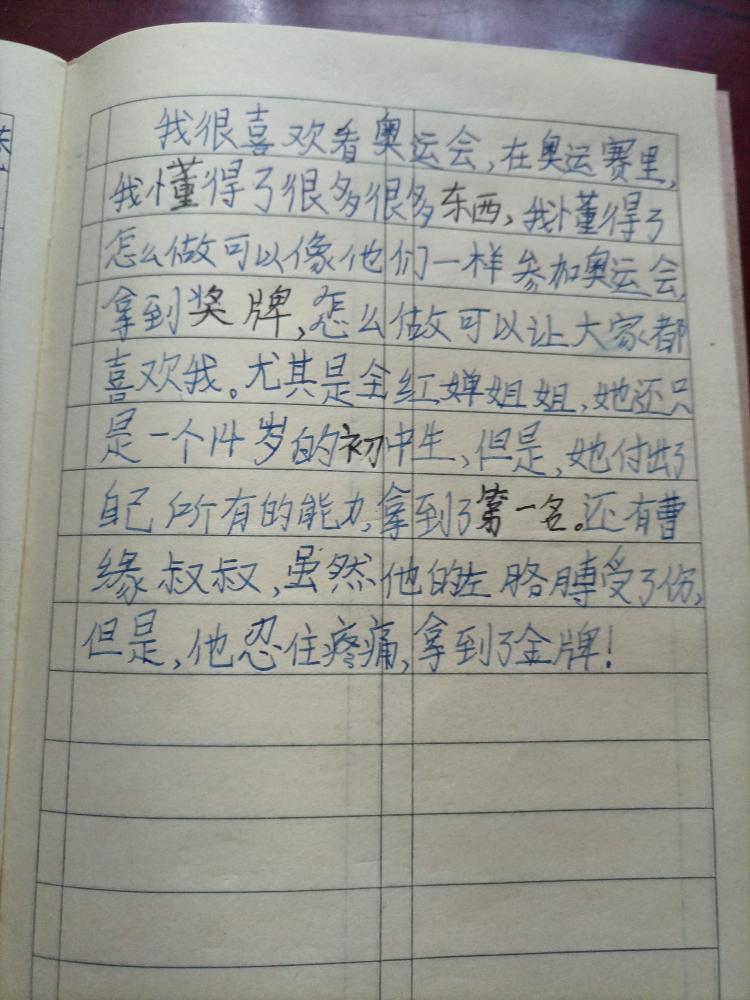 我很喜欢看奥运会，在奥运赛里，
我懂得了很多很多东西，我懂得了
怎么做可以像他们一样参加奥运会，
拿到奖牌，怎么做可以让大家都
喜欢我。尤其是全红婵姐姐，她还只
是一个14岁的初中生，但是，她付出了
自己所有的能力，拿到了第一名。还有曹
缘叔叔，虽然他的左胳膊受了伤，
但是，他忍住疼痛，拿到了金牌！